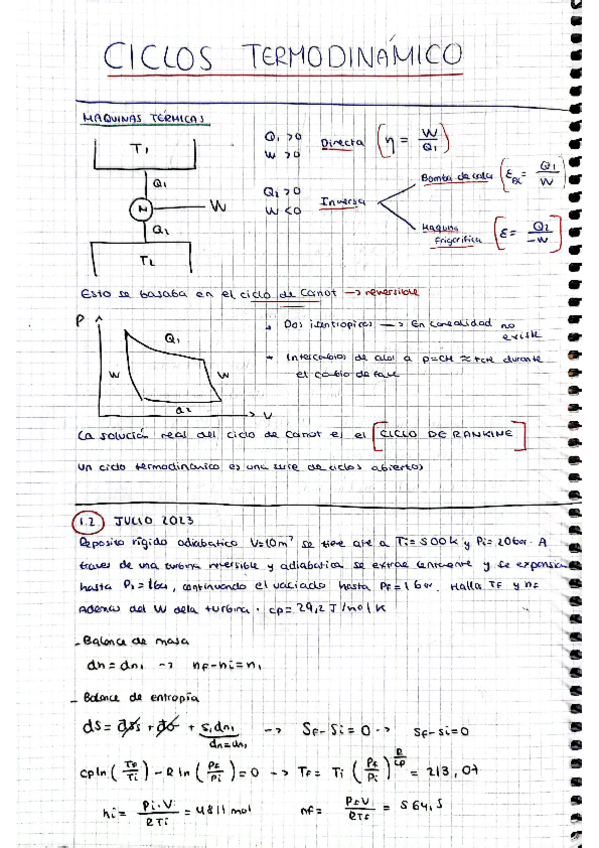 CICLOS TERMODINÁMICO
MAQUINAS TÉRMICAS
T1
Q1
M
W
Q2
T2
Q1 >0
W >0
Directa (η = W/Q1)
Q2 >0
W <0
Inversa
Bomba de calor (ε = Q1/W)
Maquina frigorifica [ε = Q2/-W]
Esto se basaba en el ciclo de Carnot → reversible
P
Q1
W
W
Q2
V
Dos isentropicos → En la realidad no existe
Intercambios de calor a p=cte ≈ t cte durante
el cambio de fase
La solución real del ciclo de Carnot es el [CICLO DE RANKINE]
Un ciclo termodinámico es una serie de ciclos abiertos
1.2 JULIO 2023
Deposito rigido adiabatico V=10m³ se tiene aire a Ti=500K y Pi=20bar. A
traves de una turbina reversible y adiabatica se extrae lentamente y se expansiona
hasta P1=1bar, continuando el vaciado hasta PF=1bar. Halla TF y nF
Ademas del W de la turbina. cp=29,2 J/mol K
- Balance de masa
dn = dn1 → nF-ni=n1
- Balance de entropía
dS = + s1dn1 → SF-Si=0 → sF-si=0
dn=dn1
cp ln(TF/Ti) - R ln(PF/Pi)=0 → TF = Ti (PF/Pi)^R/cp = 213,07
ni = Pi·V/RTi = 4811 mol
nF = PF·V/RTF = 564,5